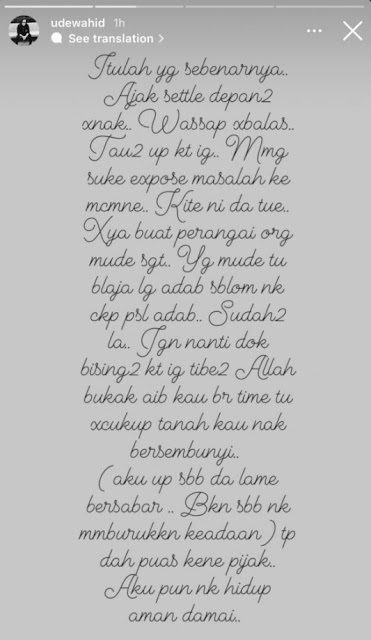 udewahid 1h
See translation >
Itulah yg sebenarnya..
Ajak settle depan2
xnak.. Wassap xbalas..
Tau2 up kt ig.. Mmg
suke expose masalah ke
mcmne.. Kite ni da tue..
Xya buat perangai org
mude sgt.. Yg mude tu
blaja lg adab sblom nk
ckp psl adab.. Sudah2
la.. Jgn nanti dok
bising2 kt ig tibe2 Allah
bukak aib kau br time tu
xcukup tanah kau nak
bersembunyi..
( aku up sbb da lame
bersabar .. Bkn sbb nk
mmburukkn keadaan ) tp
dah puas kene pijak..
Aku pun nk hidup
aman damai..